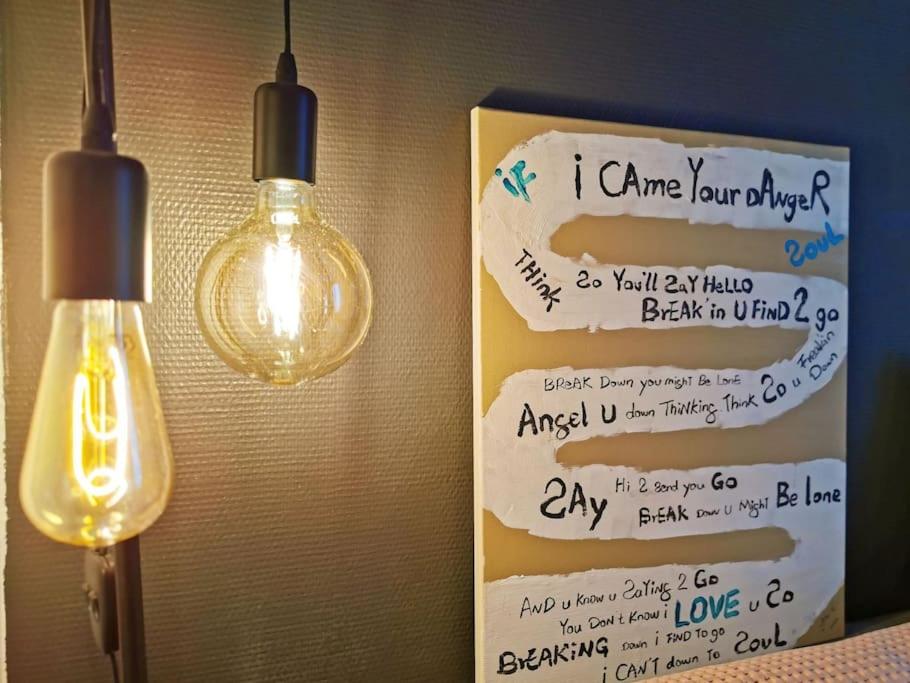 iF i CAme Your DAngeR
SouL
THiNK So You'll SaY HeLLO
BrEAK'in U FiND 2 go
BReAK Down you might Be LonE
Angel U down ThiNKing Think So u Freakin Down
SAy Hi 2 Send you Go
BrEAK Down U Might Be lone
AND u Know u SaYiNg 2 Go
You Don't Know i LOVE u So
BrEAKiNG Down i FiND To go
i CAN'T down To SouL